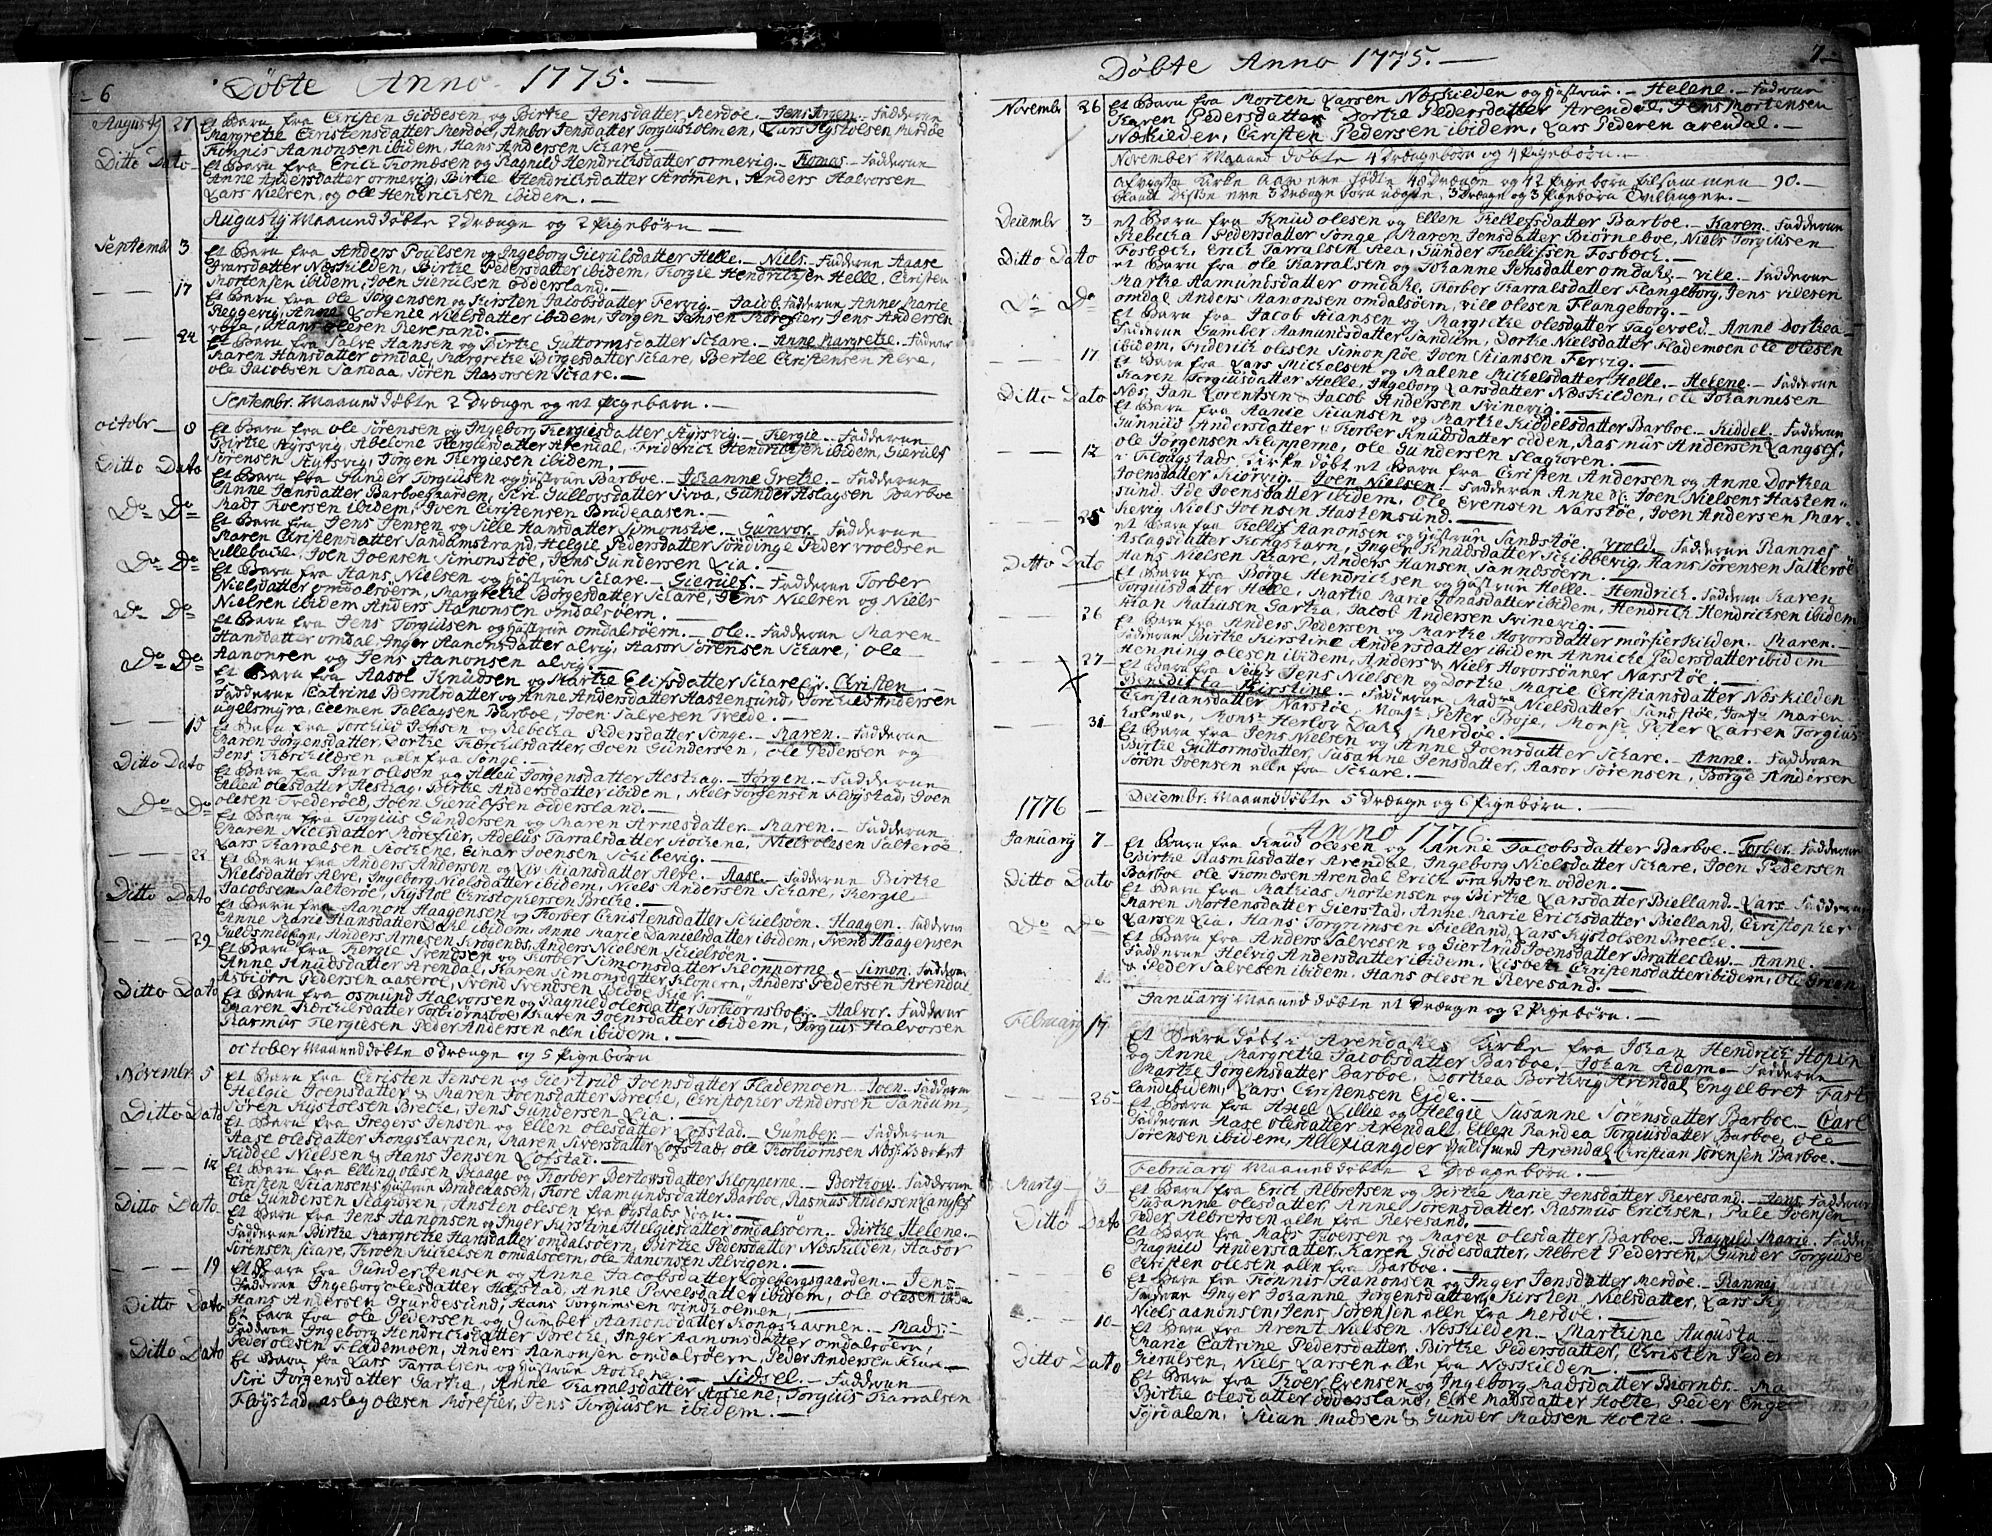 6
Döbte Anno 1775.
Augusty 27 Et Barn fra Christen Giödesen, og Birthe Jensdatter, Merdöe. Jens Jörgen. Fadderun
Margrethe Christensdatter Merdöe, Ambor Jensdatter Torgiusholmen, Lars Kystolsen Merdöe
Tönnis Aanonsen ibidem, Hans Andersen Schare.
Ditto Dato Et Barn fra Erich Thomösen og Ragnild Hendrichsdatter ormevig. Thomas. Fadderun
Anne Andersdatter ormevig, Birthe Hendrichsdatter Strömen, Anders Halvorsen
Lars Nielsen, og ole Hendrichsen ibidem.
Augusty Maanund döbte 2 Drænge og 2 Pigebørn.
Septembr 3 Et Barn fra Anders Poulsen og Ingeborg Gierulsdatter Helle. Niels. Fadderun Aase
Ivarsdatter Næskilden, Birthe Pedersdatter ibidem, Torgie Hendrichsen Helle, Christen
Mortensen ibidem, Joen Gierulsen oddersland.
17 Et Barn fra Ole Jörgensen og Kirsten Jacobsdatter Fervig. Jacob. Fadderun Anne Marie
Reggevig, Anne Lorentze Nielsdatter ibidem, Jörgen Jansen Mörefier, Jens Andersen
Hans olesen Revesand.
24 Et Barn fra Salve Hansen og Birthe Guttormsdatter Schare. Anne Margrethe. Fadderun
Karen Hansdatter omdal, Margrethe Börgesdatter Schare, Bertel Christensen Alve,
ole Jacobsen Sandaa, Sören Aasorsen Schare.
Septembr. Maanund döbte 2 Drænge og et Pigebarn.
octobr 8 Et Barn fra ole Sörensen og Ingeborg Thergiesdatter Styrsvig. Thergie. Fadderun
Birthe Styrsvig, Abelone Thergiesdatter Arendal, Friderich Hendrichsen ibidem, Gierulf
Sörensen Styrsvig, Jörgen Thergiesen ibidem.
Ditto Dato Et Barn fra Gunder Torgiusen og Hustrun Barboe. Johanne Grethe. Fadderun
Anne Jensdatter Barboegaarden, Siri Gullovsdatter Stroa, Gunder Aslaysen Barboe
Mads Thorsen ibidem, Joen Christensen Brudeaasen.
Do Do Et Barn fra Jens Jensen og Sille Hansdatter Simonstöe. Gunvor. Fadderun
Maren Christensdatter Sandumstrand, Helgie Pedersdatter Söndinge Peder vroldsen
Lillebode, Joen Joensen Simonstöe, Jens Gundersen Lia.
Do Do Et Barn fra Hans Nielsen og Hustrun Schare. Gierulf. Fadderun Torber
Nielsdatter omdalsöern, Margrethe Börgesdatter Schare, Jens Nielsen og Niels
Nielsen ibidem Anders Aanonsen omdalsöern.
Do Do Et Barn fra Jens Torgiusen og Hustrun omdalsöern. ole. Fadderun Maren
Hansdatter omdal, Inger Aanonsdatter alvig, Aasor Sörensen Schare, ole
Aanonsen og Jens Aanonsen alvig.
Do Do Et Barn fra Aasol Knudsen og Marthe Elissdatter Schare. Christen.
Fadderun Catrine Berntsdatter og Anne Andersdatter Hastensund, Torchild Andersen
ugelsmyra, Clemen Tallaysen Barboe, Joen Salvesen Trelde.
15 Et Barn fra Torchild Jensen og Rebecka Pedersdatter Songe. Maren. Fadderun
Karen Jörgensdatter, Dorthe Thorchilsdatter, Joen Gundersen, ole Pedersen og
Jens Thorchildsen alle fra Songe.
Ditto Dato Et Barn fra Ivar olesen og Alleu Jörgensdatter Hesthag. Jörgen. Fadderun
Alleu olesdatter Hesthag, Birthe Andersdatter ibidem, Niels Jörgensen Flöystad, Joen
olesen Trederöed, Joen Gierulssen oddersland.
Do Do Et Barn fra Torgius Gundersen og Maren Arnesdatter. Maren. Fadderun
Karen Nielsdatter Mörefier, Adelus Tarralsdatter Stochene, Niels olesen Salteröe
Lars Tharralsen Stochene, Einar Joensen Schibevig.
22 Et Barn fra Anders Andersen og Liv Kiansdatter Alve. Aase. Fadderun Birthe
Nielsdatter Alve, Ingeborg Nielsdatter ibidem, Niels Andersen Schare, Thergie
Jacobsen Salteröe, Kystol Christophersen Breche.
Ditto Dato Et Barn fra Aanon Haagensen og Torber Christensdatter Schielsöen. Haagen. Fadderun
Anne Marie Hansdatter Dahl ibidem, Anne Marie Danielsdatter ibidem, Svend Haagensen
Guldsmedeng, Anders Arnesen Krögenes, Anders Nielsen Schielsöen.
29 Et Barn fra Thergie Svendsen og Torber Simonsdatter Klopperne. Simon. Fadderun
Anne Knudsdatter Arendal, Karen Simonsdatter Klopern, Anders Pedersen Arendal
Asbiörn Pedersen aaseröe, Svend Svendsen
Ditto Dato Et Barn fra osmund Halvorsen og Ragnild olesdatter Torbiörnsboe. Halvor. Fadderun
Maren Thorchilsdatter Torbiörnsboe, Karen Joensdatter ibidem, Torgius Halvorsen
Rasmus Thergiesen, Peder Andersen alle ibidem.
october Maanund döbte 8 drænge og 5 Pigebörn
Novembr 5 Et Barn fra Christen Jensen og Giertrud Joensdatter Flademoen. Joen. Fadderun
Helgie Joensdatter & Maren Joensdatter Breche, Christopher Andersen Sandum,
Sören Kystolsen Breche, Jens Gundersen Lia.
Ditto Dato Et Barn fra Gregers Jensen og Ellen olesdatter Löfstad. Gumber. Fadderun
Aase olesdatter Kongshavnen, Maren Siversdatter Löfstad, ole Thorbiörnsen
Kiddel Nielsen & Hans Jensen Löfstad.
12 Et Barn fra Elling olesen Plaage og Torber Bertovsdatter Klopperne. Berthow. Fadderun
Christen Kiansens Hustrun Brudeaasen, Thore Aamundsdatter Barboe, Rasmus Andersen Langsef
ole Gundersen Slaghoven, Ansten olesen fra
Ditto Dato Et Barn fra Jens Aanonsen og Inger Kirstine Helgiesdatter omdalsöern. Birthe Helene.
Fadderun Birthe Margrethe Hansdatter omdalsöern, Birthe Pedersdatter Næskilden, Aasor
Sörensen Schare, Throen Michelsen omdalsöern, ole Aanonsen Alvigen.
19 Et Barn fra Gunder Jensen og Anne Jacobsdatter Logebergsgaarden. Jens.
Fadderun Ingeborg olesdatter Hegstad, Anne Povelsdatter ibidem, ole olesen ibidem
Hans Andersen Grundesund, Hans Torgrimsen vindholmen.
Ditto Dato Et Barn fra ole Pedersen og Gumber Aanonsdatter Kongshavnen. Mads.
Fadderun Ingeborg Hendrichsdatter Breche, Inger Aamonsdatter omdalsöern,
Peder olesen Flademoen, Anders Aanonsen omdalsöern, Peder Andersen Schare
Ditto Dato Et Barn fra Lars Tarralsen og Hustrun Stochene. Sidsel. Fadderun
Siri Jörgensdatter Gartha, Anne Tharralsdatter Stochene, Torgius Tharralsen
Flöystad, aslag olesen Mörefier, Jens Torgiusen ibidem.
7
Döbte Anno 1775.
Novembr 26 Et Barn fra Morten Larsen Næskilden og Hustrun. Helene. Fadderun
Karen Pedersdatter, Dorthe Pedersdatter Arendal, Jens Mortensen
Næskilden, Christen Pedersen ibidem, Lars Pedersen arendal.
November Maanund döbte 4 Drængebörn og 4 Pigebörn.
afvigte Kirke Aar ere födte 48 Drænge og 42 Pigebörn tilsammen 90.
iblandt disse ere 3 Drænge börn uægte, 3 Drænge og 3 Pigebörn Tvillinger.
Deiembr 3 et Barn fra Knud olesen og Ellen Kellefsdatter Barboe. Karen. Fadderun
Rebecka Pedersdatter Songe, Maren Jensdatter Biörneboe, Niels Torgiusen
Fosbech, Erich Tarralsen Aaa, Gunder Kellifsen Fosbech.
Ditto Dato et Barn fra Ole Tharralsen og Johanne Jensdatter omdahl. vile. Fadderun
Marthe Aamundsdatter omdahl, Thorber Tharralsdatter Flangeborg, Jens vilesen
omdal Anders Aanonsen omdalsöern, vill olesen Flangeborg.
Do Do Et Barn fra Jacob Kiansen og Margrethe olesdatter Tagevold. Anne Dorthea
Fadderun Gumber Aamundsdatter Sandum, Dorthe Nielsdatter Flademoen ole olesen
ibidem, Friderich olesen Simonstöe, Joen Kiansen Fervig.
17 Et Barn fra Lars Michelsen og Malene Michelsdatter Helle. Helene. Fadderun
Karen Torgiusdatter Helle, Ingeborg Larsdatter Næskilden, ole Johannesen
Næs, Jan Lorentsen & Jacob Andersen Svinevig.
Ditto Dato Et Barn fra Aanie Kiansen og Marthe Kiddelsdatter Barboe. Kiddel. Fadderun
Gunnild Andersdatter & Thorber Knudsdatter odden, Rasmus Andersen Langsef,
ole Jörgensen Klopperne, ole Gundersen Slaghoven.
12 i Flöystads Kirke döbt et Barn fra Christen Andersen og Anne Dorthea
Joensdatter Kiörvig. Joen Nielsen. Fadderun Anne Joen Nielsens Hasten-
sund, Ide Joensdatter ibidem, Ole Evensen Narstöe, Joen Andersen Mar-
kevig Niels Joensen Hastensund.
25 et Barn fra Kellif Aanonsen og Hustrun Sandstöe. vrold. Fadderun Rannei
Aslagsdatter Kongshavn, Inger Knudsdatter Schibbevig, Hans Sörensen Salteröe
Hans Nielsen Schare, Anders Hansen Sannesöern.
Ditto Dato Et Barn fra Börge Hendrichsen og Hustrun Helle. Hendrich. Fadderun Karen
Torgiusdatter Helle, Marthe Marie Jonasdatter ibidem, Hendrich Hendrichsen ibidem
Jean Mathisen Gartha, Jacob Andersen Svinevig.
26 Et Barn fra Anders Pedersen og Marthe Hovorsdatter mörfierkilden. Maren.
Fadderun Birthe Kirstine Andersdatter ibidem Anniche Pedersdatter ibidem
Henning olesen ibidem, Anders & Niels Hovorsönner Narstöe.
27 Et Barn fra Jens Nielsen og Dorthe Marie Christiansdatter Næskilden
Benedicta Kirstine. Fadderun Madm Nielsdatter Sandstöe, Jomfr Maren
Christiansdatter Narstöe, Monsr Peter Boje, Monsr Peter Larsen Torgius
holmen, Monsr Herlov Dahl Merdöe.
31 Et Barn fra Jens Nielsen og Anne Joensdatter Schare. Anne. Fadderun
Birthe Guttormsdatter, Susanne Jensdatter, Aasor Sörensen, Börge Andersen
Sörn Joensen alle fra Schare.
Deiembr. Maanund döbte 5 Drænge og 6 Pigebörn.
1776 Anno 1776.
January 7 Et Barn fra Knud olesen og Anne Jacobsdatter Barboe. Torber. Fadderun
Birthe Rasmusdatter Arendal, Ingeborg Nielsdatter Schare, Joen Pedersen
Barboe ole Thomösen Arendal Erich Frantsen odden.
Ditto Dato Et Barn fra Mathias Mortensen og Birthe Larsdatter Bielland. Lars. Fadderun
Maren Mortensdatter Gierstad, Anne Marie Erichsdatter Bielland, Christopher
Larsen Lia, Hans Torgrimsen Bielland, Lars Kystolsen Breche.
Do Do Et Barn fra Anders Salvesen og Giertrud Joensdatter Bratteclev. Anne.
Fadderun Helvig Andersdatter ibidem, Lisbeth Christensdatter ibidem, Ole Green
& Peder Salvesen ibidem, Hans olesen Revesand.
January Maanund döbte et Drænge og 2 Pigebörn.
February 17 Et Barn döbt i Arendahls Kirke fra Johan Hendrich Hopin
og Anne Margrethe Jacobsdatter Barboe, Johan Adam. Fadderun
Marthe Jörgensdatter Barboe, Dorthea Borthvig Arendal Engelbret Fast
land ibidem, Lars Christensen Eide.
25 Et Barn fra Axel Lillie og Helgie Susanne Sörensdatter Barboe. Carl
Fadderun Aase olesdatter Arendal, Ellen Randea Torgiusdatter Barboe, Ole
Sörensen ibidem, Allexiangder Guldsmed Arendal Christian Sörensen Barboe.
February Maanund döbte 2 Drængebörn.
Marty 3 Et Barn fra Erich Albretsen og Birthe Marie Jensdatter Revesand. Jens. Fadderun
Susanne olesdatter, Anne Sörensdatter, Rasmus Erichsen, Pale Joensen
Peder Albretsen alle fra Revesand.
Ditto Dato Et Barn fra Mads Iversen og Maren olesdatter Barboe. Ragnild Marie. Fadder
Ragnild Andersdatter, Karen Giödesdatter, Albret Pedersen, Gunder Torgiuse
Christen olesen alle fra Barboe.
6 Et Barn fra Tönnis Aanonsen og Inger Jensdatter Merdöe. Rannej
Fadderun Inger Johanne Jörgensdatter, Kirsten Nielsdatter, Lars
Niels aanonsen, Jens Sörensen alle fra Merdöe.
10 Et Barn fra Arent Nielsen Næskilden. Marthine Augusta
Marie Catrine Pedersdatter, Birthe Pedersdatter, Christen Peder
Gierulsen, Niels Larsen alle fra Næskilden
Ditto Dato Et Barn fra Thoer Evensen og Ingeborg Madsdatter Biornes. Ma
Birthe olesdatter oddersland, Else Madsdatter Holte, Peder Enge
Syrdalen, Kian Madsen & Gunder Madsen Holte.